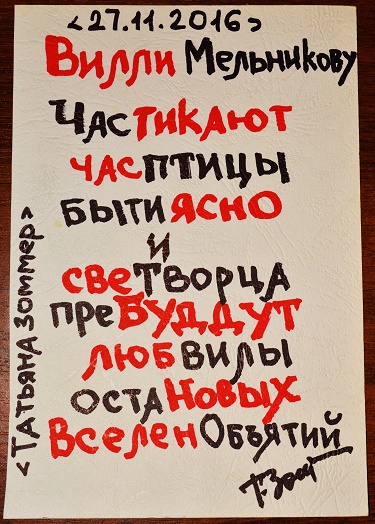 <27.11.2016>
Вилли Мельникову
ЧасТИКАЮТ
часптицы
быти ясно
и
светворца
преБуддут
любвилы
остаНовых
ВселенОбъятий
<Татьяна Зоммер>